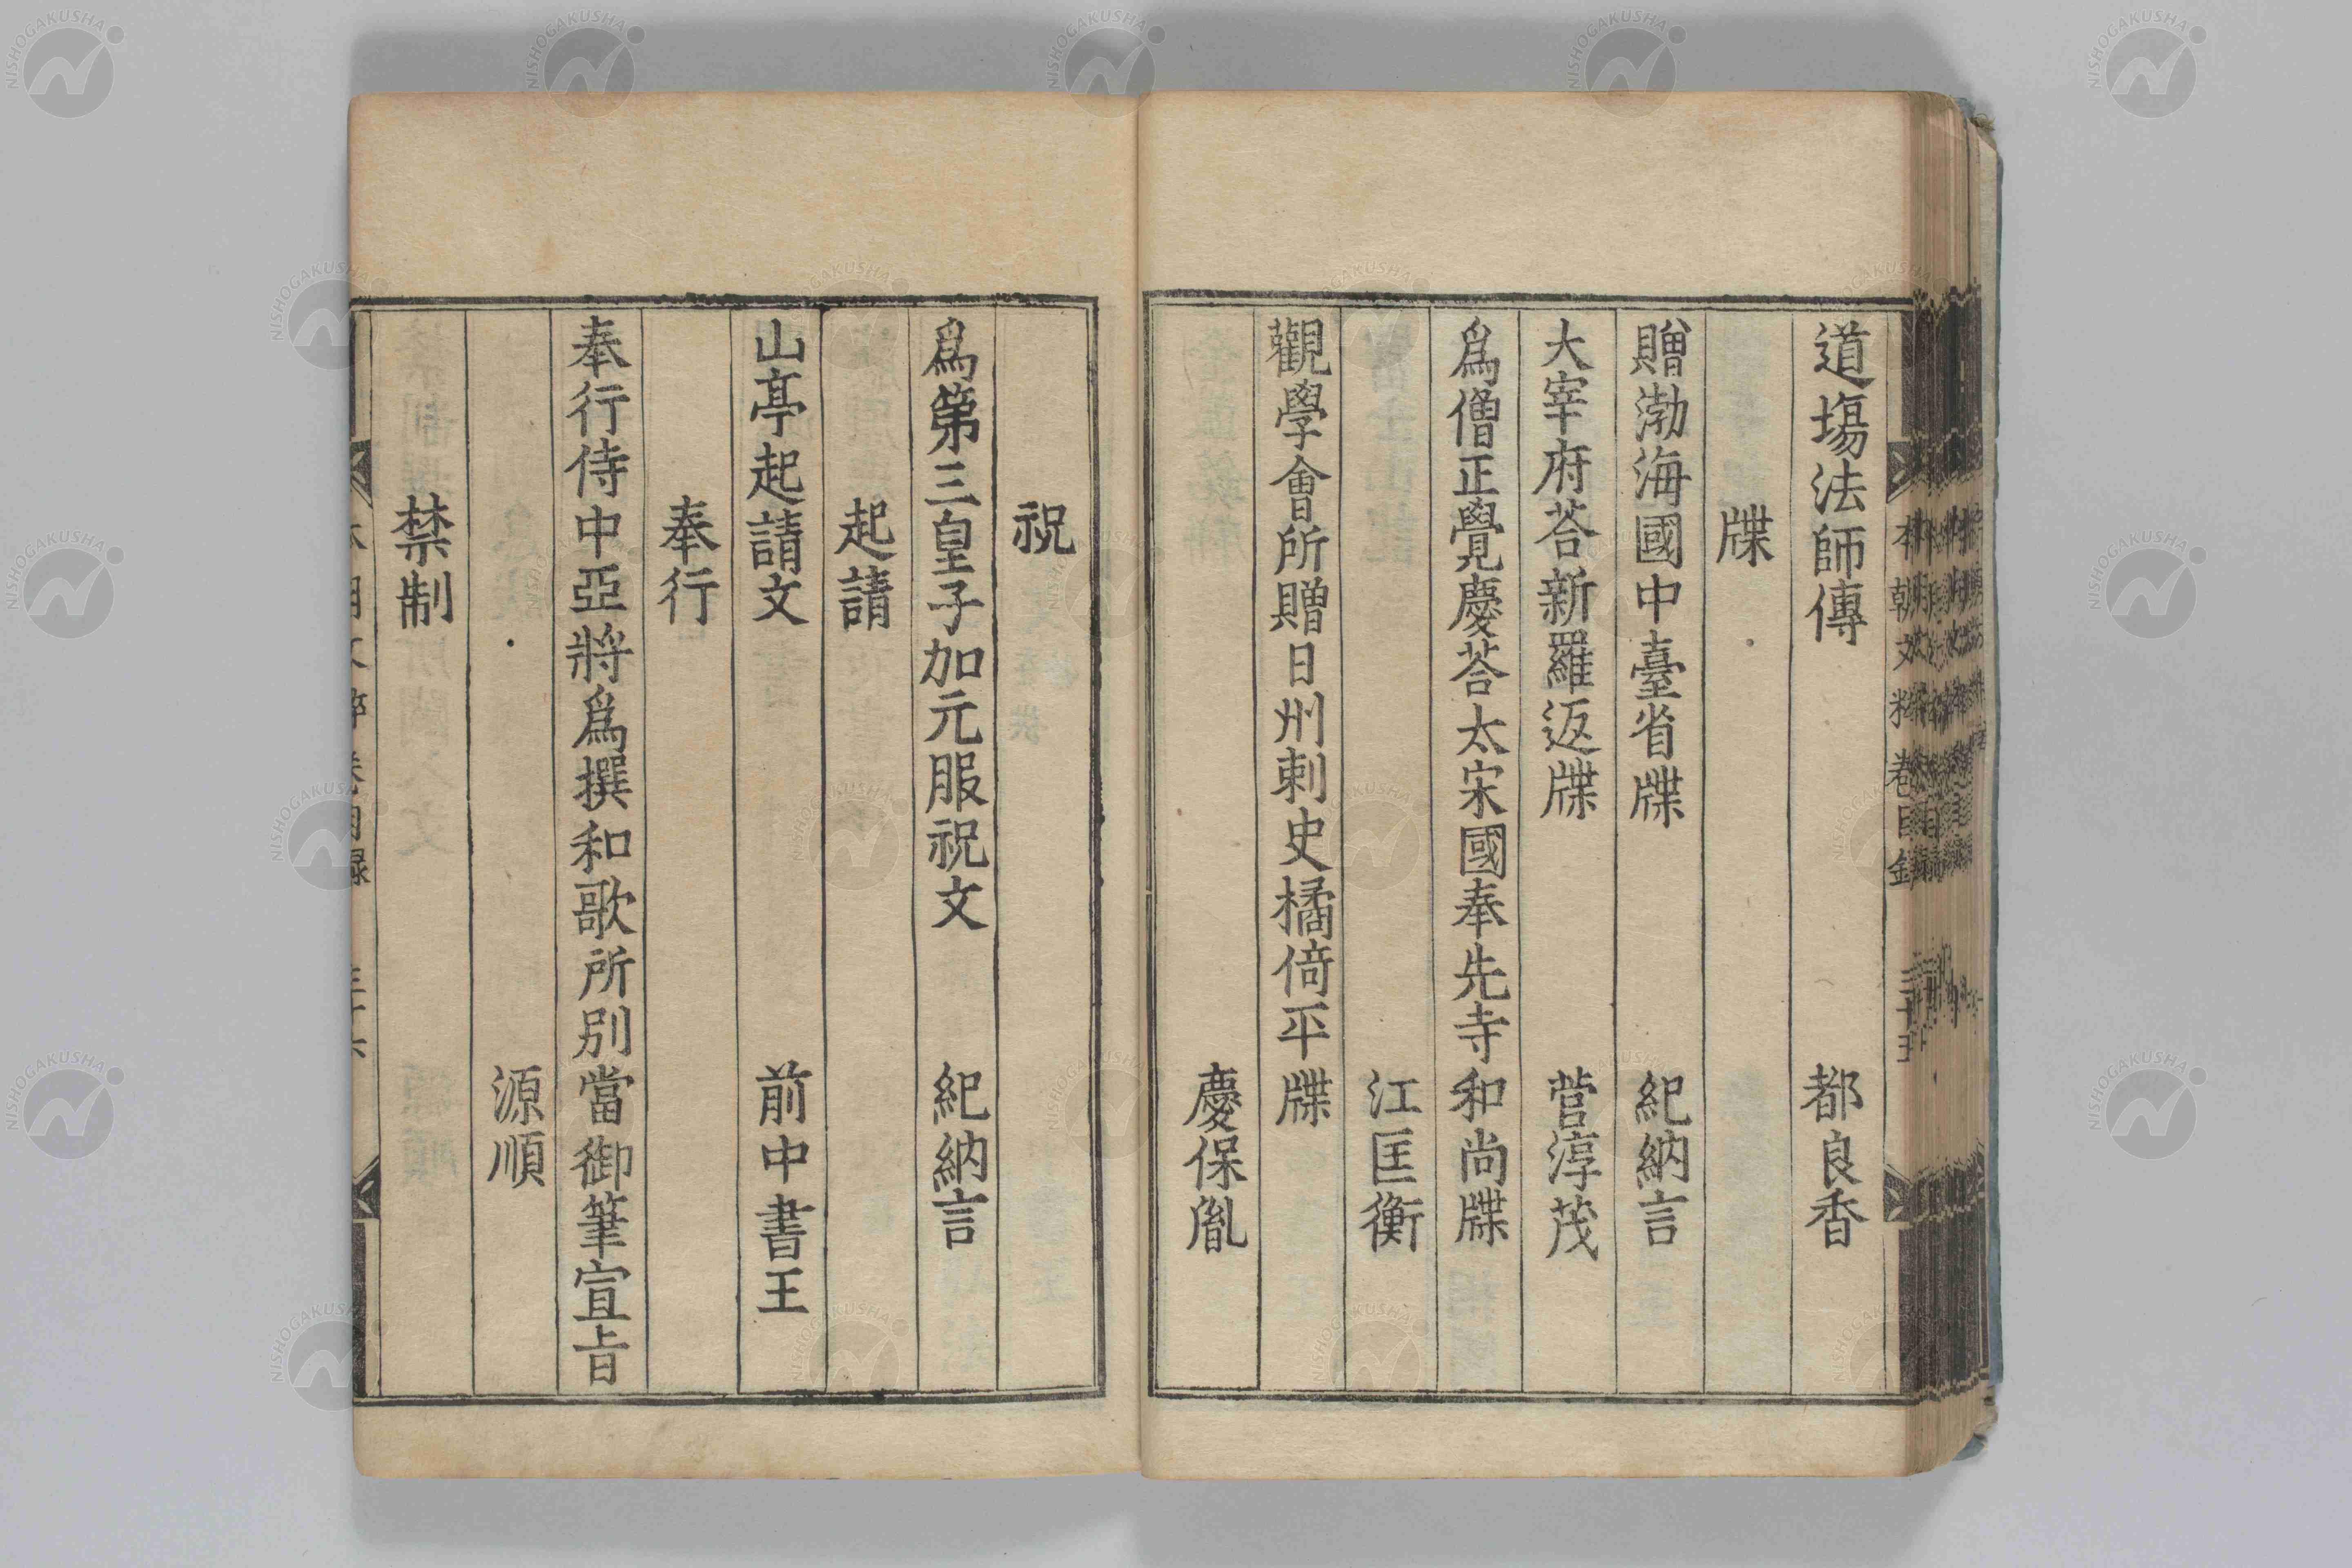 道場法師傳 都良香
牒
贈渤海國中臺省牒 紀納言
大宰府荅新羅返牒 菅淳茂
爲僧正覺慶荅太宋國奉先寺和尚牒
江匡衡
觀學會所贈日州刺史橘倚平牒
慶保胤
祝
爲第三皇子加元服祝文 紀納言
起請
山亭起請文 前中書王
奉行
奉行侍中亞將爲撰和歌所別當御筆宣旨
源順
禁制
NISHOGAKUSHA